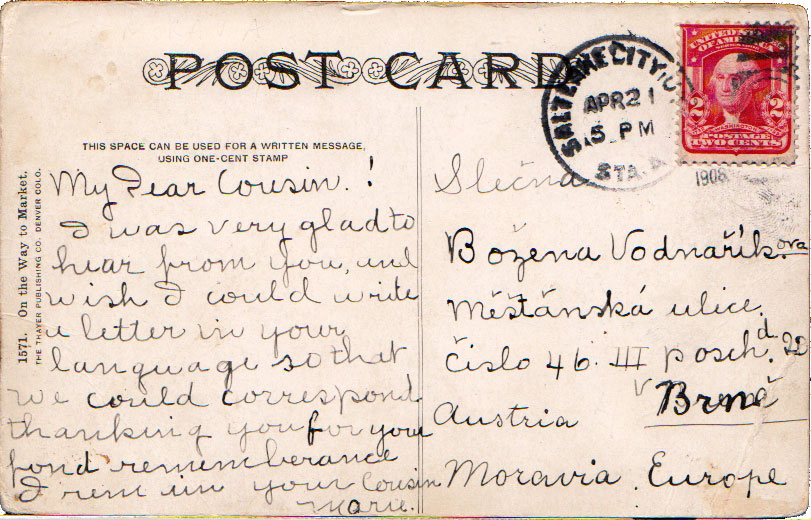 POST CARD
SALT LAKE CITY, U
APR 21
5 PM
STA. A
UNITED STATES
OF AMERICA
2 2
POSTAGE
TWO CENTS
1908
THIS SPACE CAN BE USED FOR A WRITTEN MESSAGE,
USING ONE-CENT STAMP
1571. On the Way to Market.
THE THAYER PUBLISHING CO. DENVER COLO.
My Dear Cousin!
I was very glad to
hear from you, and
wish I could write
a letter in your
language so that
we could correspond
thanking you for your
fond rememberance
I remain your Cousin
Marie.
Slečna
Božena Vodnaříkova
Měštánská ulice
číslo 46. III posch. d. 22
v Brně
Austria
Moravia, Europe